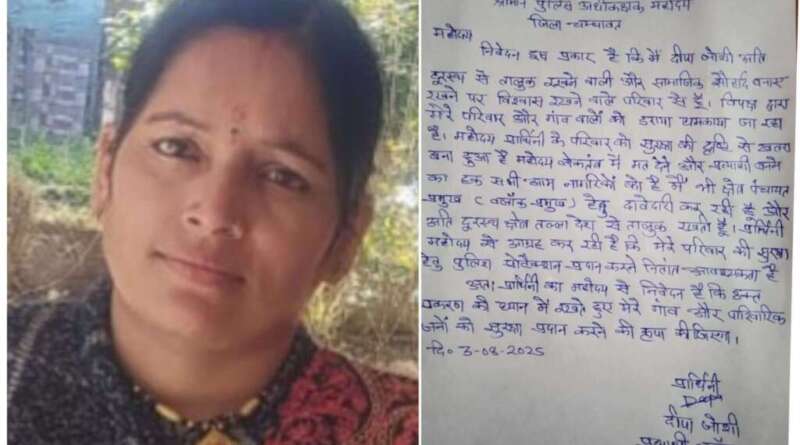 श्रीमान पुलिस अधीक्षक महोदय
जिला - चम्पावत
महोदय
निवेदन इस प्रकार है कि मैं दीपा जोशी अति
दूरस्थ से तालुक रखने वाली और सामाजिक सौहार्द बनाए
रखने पर विश्वास रखने वाले परिवार से हूँ। विपक्ष द्वारा
मेरे परिवार और गांव वालों को डराया धमकाया जा रहा
है। महोदय प्रार्थिनी के परिवार को सुरक्षा की दृष्टि से खतरा
बना हुआ है महोदय लोकतंत्र में मत देने और प्रत्याशी बनने
का हक सभी आम नागरिकों को है मैं भी क्षेत्र पंचायत
प्रमुख (ब्लॉक प्रमुख) हेतु दावेदारी कर रही हूँ और
अति दूरस्थ क्षेत्र तल्ला देश से तालुक रखती हूँ। प्रार्थिनी
महोदय से आग्रह कर रही है कि मेरे परिवार की सुरक्षा
हेतु पुलिस प्रोटेक्शन प्रदान करने नितांत आवश्यकता है
अतः प्रार्थिनी का महोदय से निवेदन है कि उक्त
प्रकरण को ध्यान में रखते हुए मेरे गांव और पारिवारिक
जनों को सुरक्षा प्रदान करने की कृपा कीजिएगा।
दि० 3-08-2025
प्रार्थिनी
दीपा जोशी